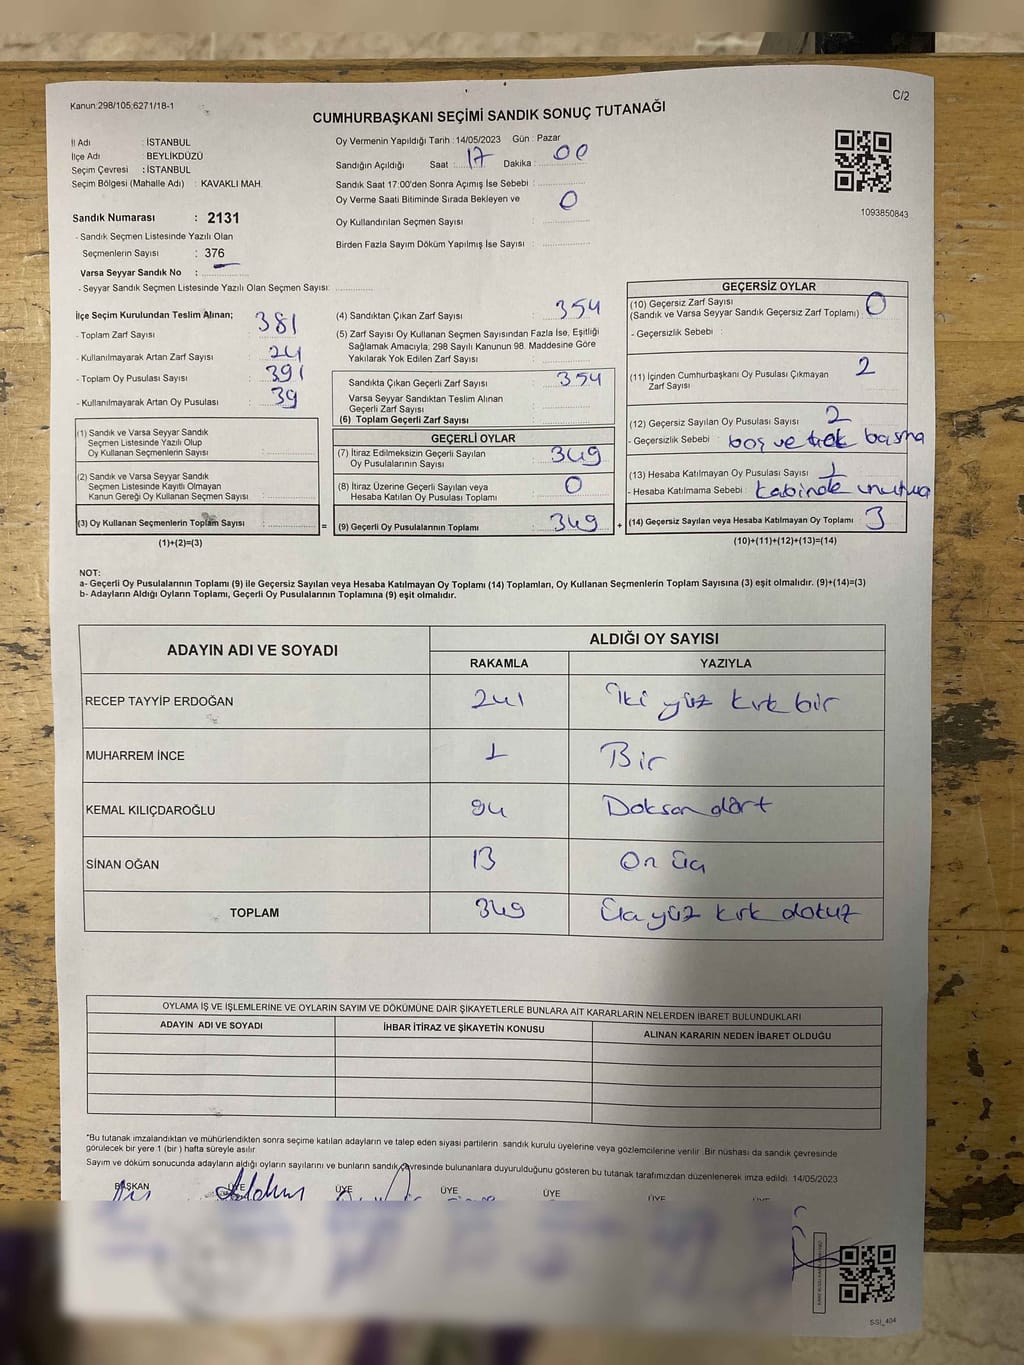 Kanun:298/105;6271/18-1
C/2
CUMHURBAŞKANI SEÇİMİ SANDIK SONUÇ TUTANAĞI
İl Adı : İSTANBUL
İlçe Adı BEYLİKDÜZÜ
Seçim Çevresi : İSTANBUL
Seçim Bölgesi (Mahalle Adı) : KAVAKLI MAH.
Sandık Numarası : 2131
- Sandık Seçmen Listesinde Yazılı Olan
Seçmenlerin Sayısı : 376
Varsa Seyyar Sandık No :
- Seyyar Sandık Seçmen Listesinde Yazılı Olan Seçmen Sayısı:
Oy Vermenin Yapıldığı Tarih : 14/05/2023 Gün : Pazar
Sandığın Açıldığı Saat : 17 Dakika : 00
Sandık Saat 17:00'den Sonra Açımış İse Sebebi :
Oy Verme Saati Bitiminde Sırada Bekleyen ve 0
Oy Kullandırılan Seçmen Sayısı
Birden Fazla Sayım Döküm Yapılmış İse Sayısı :
1093850843
İlçe Seçim Kurulundan Teslim Alınan;
- Toplam Zarf Sayısı : 381
- Kullanılmayarak Artan Zarf Sayısı : 24
- Toplam Oy Pusulası Sayısı : 391
- Kullanılmayarak Artan Oy Pusulası : 39
(1) Sandık ve Varsa Seyyar Sandık
Seçmen Listesinde Yazılı Olup
Oy Kullanan Seçmenlerin Sayısı :
(2) Sandık ve Varsa Seyyar Sandık
Seçmen Listesinde Kayıtlı Olmayan
Kanun Gereği Oy Kullanan Seçmen Sayısı :
(3) Oy Kullanan Seçmenlerin Toplam Sayısı :
(1)+(2)=(3)
(4) Sandıktan Çıkan Zarf Sayısı : 354
(5) Zarf Sayısı Oy Kullanan Seçmen Sayısından Fazla İse, Eşitliği
Sağlamak Amacıyla, 298 Sayılı Kanunun 98. Maddesine Göre
Yakılarak Yok Edilen Zarf Sayısı :
Sandıkta Çıkan Geçerli Zarf Sayısı : 354
Varsa Seyyar Sandıktan Teslim Alınan
Geçerli Zarf Sayısı :
(6) Toplam Geçerli Zarf Sayısı :
GEÇERLİ OYLAR
(7) İtiraz Edilmeksizin Geçerli Sayılan
Oy Pusulalarının Sayısı : 349
(8) İtiraz Üzerine Geçerli Sayılan veya
Hesaba Katılan Oy Pusulası Toplamı : 0
= (9) Geçerli Oy Pusulalarının Toplamı : 349 +
GEÇERSİZ OYLAR
(10) Geçersiz Zarf Sayısı
(Sandık ve Varsa Seyyar Sandık Geçersiz Zarf Toplamı) : 0
- Geçersizlik Sebebi :
(11) İçinden Cumhurbaşkanı Oy Pusulası Çıkmayan
Zarf Sayısı : 2
(12) Geçersiz Sayılan Oy Pusulası Sayısı : 2
- Geçersizlik Sebebi : boş ve basma
(13) Hesaba Katılmayan Oy Pusulası Sayısı : 1
- Hesaba Katılmama Sebebi : kabinde
(14) Geçersiz Sayılan veya Hesaba Katılmayan Oy Toplamı : 3
(10)+(11)+(12)+(13)=(14)
NOT:
a- Geçerli Oy Pusulalarının Toplamı (9) ile Geçersiz Sayılan veya Hesaba Katılmayan Oy Toplamı (14) Toplamları, Oy Kullanan Seçmenlerin Toplam Sayısına (3) eşit olmalıdır. (9)+(14)=(3)
b- Adayların Aldığı Oyların Toplamı, Geçerli Oy Pusulalarının Toplamına (9) eşit olmalıdır.
ADAYIN ADI VE SOYADI ALDIĞI OY SAYISI
RAKAMLA YAZIYLA
RECEP TAYYİP ERDOĞAN 241 İki yüz kırk bir
MUHARREM İNCE 1 Bir
KEMAL KILIÇDAROĞLU 94 Doksan dört
SİNAN OĞAN 13 On üç
TOPLAM 349 Üç yüz kırk dokuz
OYLAMA İŞ VE İŞLEMLERİNE VE OYLARIN SAYIM VE DÖKÜMÜNE DAİR ŞİKAYETLERLE BUNLARA AİT KARARLARIN NELERDEN İBARET BULUNDUKLARI
ADAYIN ADI VE SOYADI İHBAR İTİRAZ VE ŞİKAYETİN KONUSU ALINAN KARARIN NEDEN İBARET OLDUĞU
"Bu tutanak imzalandıktan ve mühürlendikten sonra seçime katılan adayların ve talep eden siyasi partilerin sandık kurulu üyelerine veya gözlemcilerine verilir. Bir nüshası da sandık çevresinde
görülecek bir yere 1 (bir) hafta süreyle asılır
Sayım ve döküm sonucunda adayların aldığı oyların sayılarını ve bunların sandık çevresinde bulunanlara duyurulduğunu gösteren bu tutanak tarafımızdan düzenlenerek imza edildi. 14/05/2023
BAŞKAN ÜYE ÜYE ÜYE ÜYE ÜYE ÜYE
SSİ_404